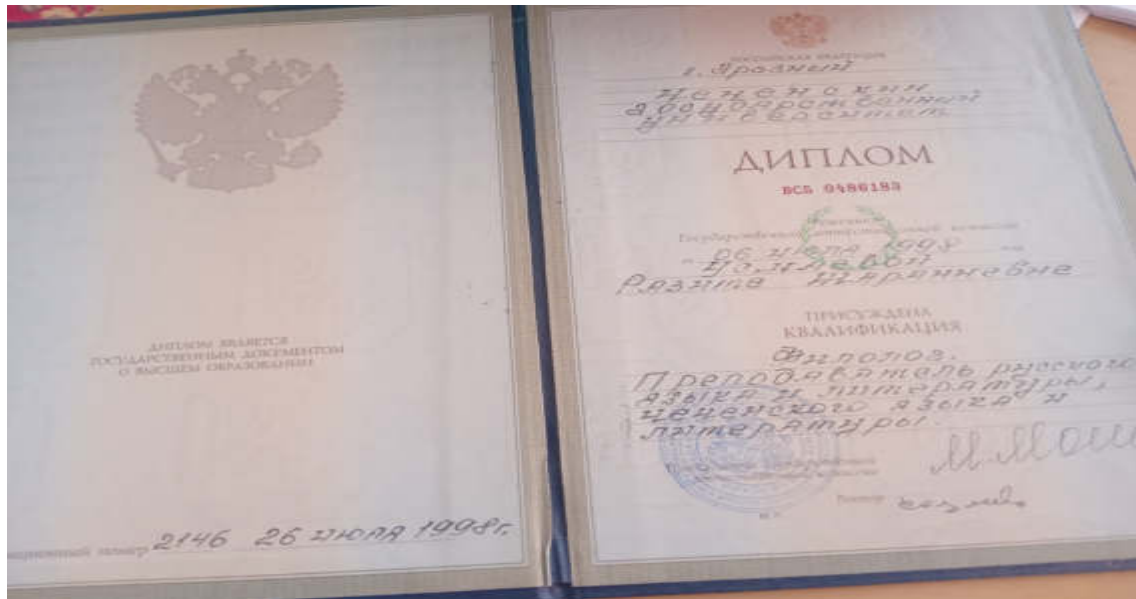 ДИПЛОМ ЯВЛЯЕТСЯ
ГОСУДАРСТВЕННЫМ ДОКУМЕНТОМ
О ВЫСШЕМ ОБРАЗОВАНИИ
номер 2146 26 июля 1998г.
РОССИЙСКАЯ ФЕДЕРАЦИЯ
г. Грозный
Чеченский
государственный
университет
ДИПЛОМ
ВСБ 0486183
Решением
Государственной аттестационной комиссии
06 июля 1998
Разите
ПРИСУЖДЕНА
КВАЛИФИКАЦИЯ
Филолог.
Преподаватель русского
языка и литературы,
чеченского языка и
литературы.
Ректор